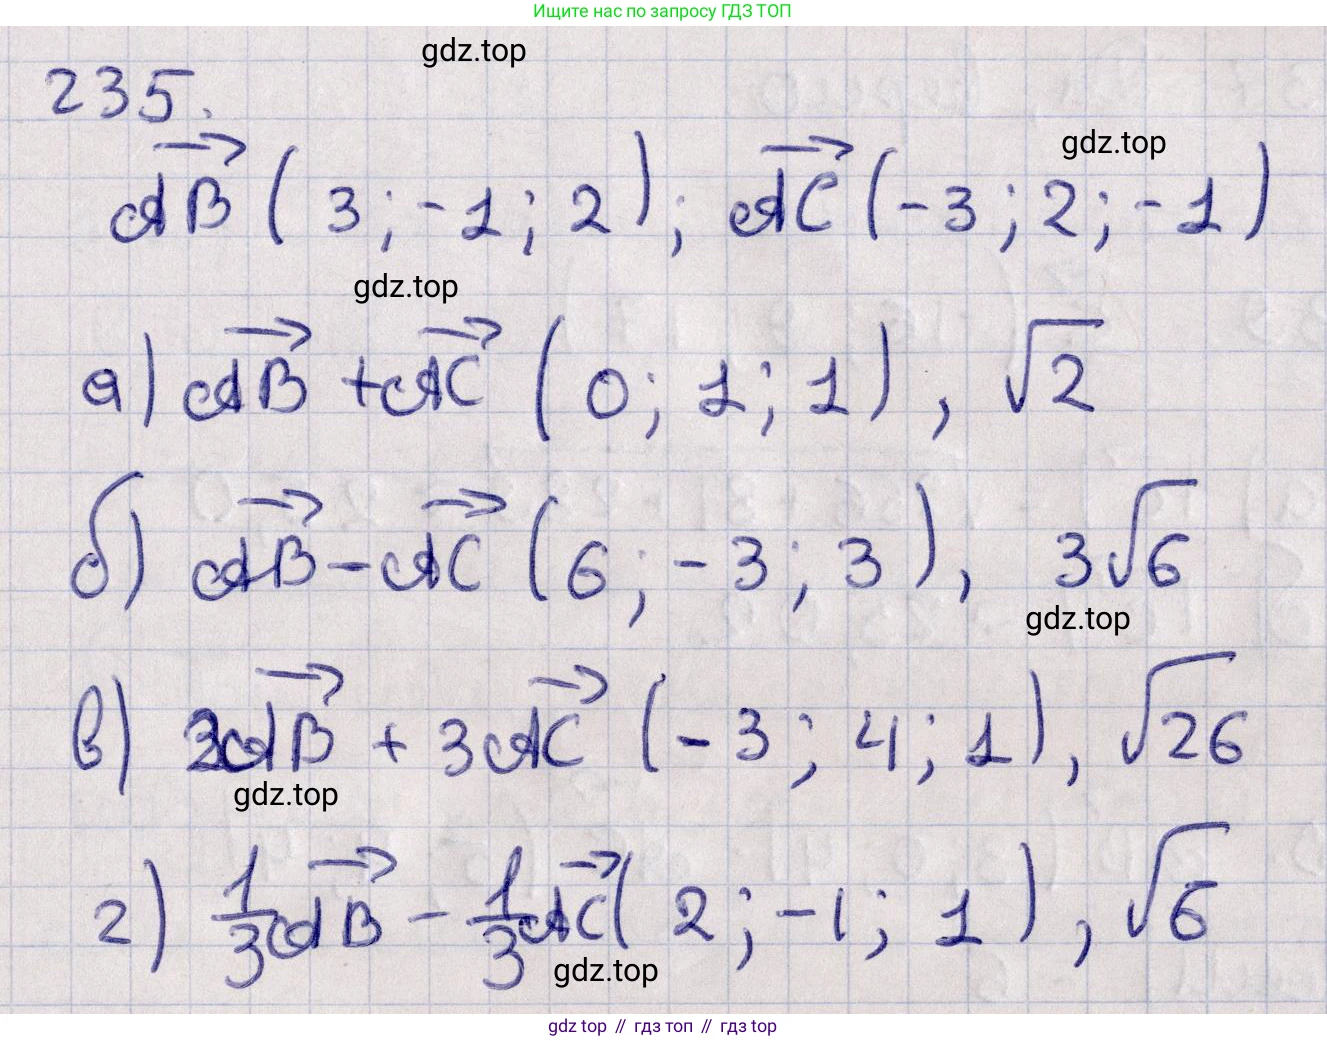 Ищите нас по запросу ГДЗ ТОП
gdz.top
235.
gdz.top
AB→ ( 3 ; -1 ; 2 ) ; AC→ ( -3 ; 2 ; -1 )
gdz.top
а) AB→ + AC→ ( 0 ; 1 ; 1 ) , √2
б) AB→ - AC→ ( 6 ; -3 ; 3 ) , 3√6
gdz.top
в) 2AB→ + 3AC→ ( -3 ; 4 ; 1 ) , √26
gdz.top
г) 1/3 AB→ - 1/3 AC→ ( 2 ; -1 ; 1 ) , √6
gdz.top
gdz top // гдз топ // gdz top